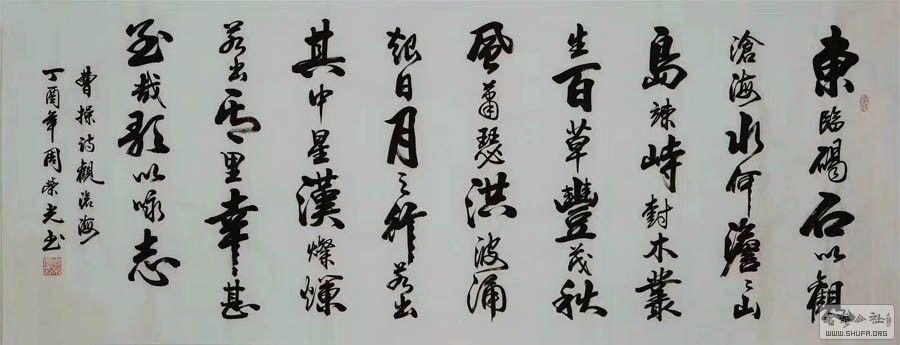 東臨碣石以觀
滄海水何澹〻山
島竦峙樹木叢
生百草豐茂秋
風蕭瑟洪波涌
起日月之行若出
其中星漢燦爛
若出其里幸〻甚
至哉歌以咏志
曹操詩觀滄海
丁酉年周榮光書
書法公社
WWW.SHUFA.ORG